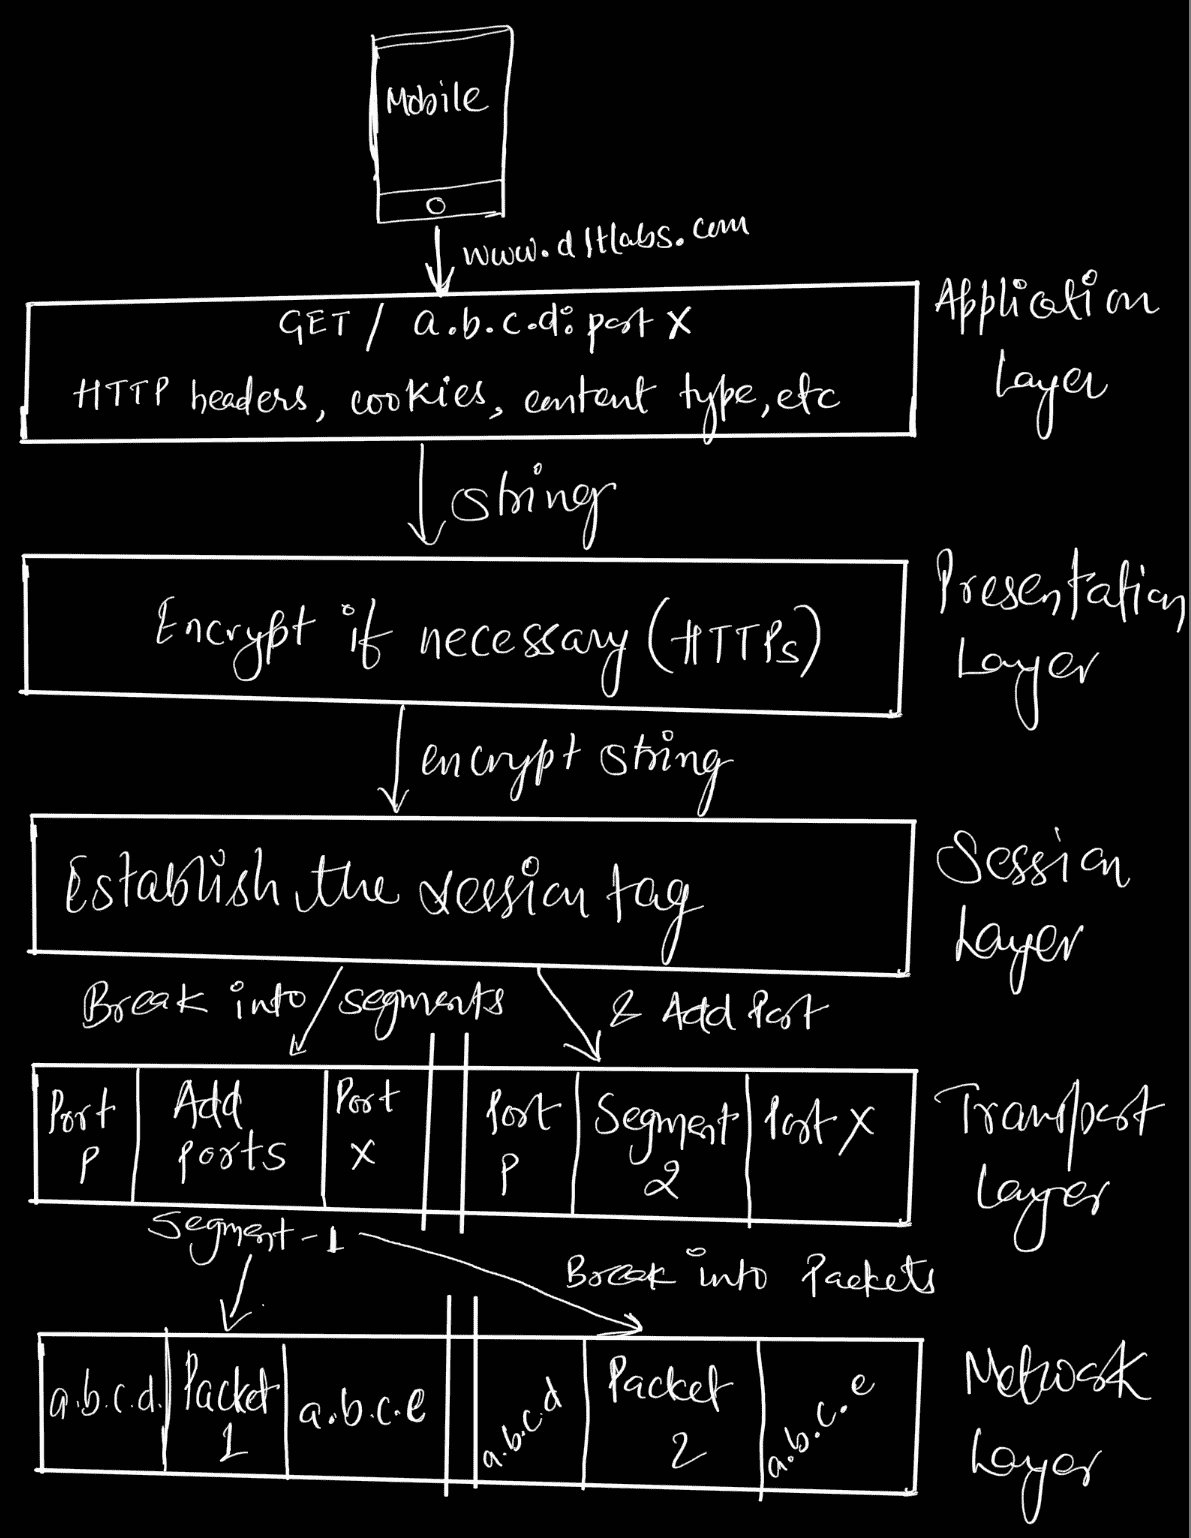 Mobile
www.dltlabs.com
GET / a.b.c.d: port X
HTTP headers, cookies, content type, etc
Application
Layer
string
Encrypt if necessary (HTTPs)
Presentation
Layer
encrypt string
Establish the session tag
Session
Layer
Break into segments
& Add Port
Port
P
Add
ports
Port
X
Port
P
Segment
2
Port X
Transport
Layer
Segment-1
Break into Packets
a.b.c.d.
Packet
1
a.b.c.e
a.b.c.d
Packet
2
a.b.c.e
Network
Layer